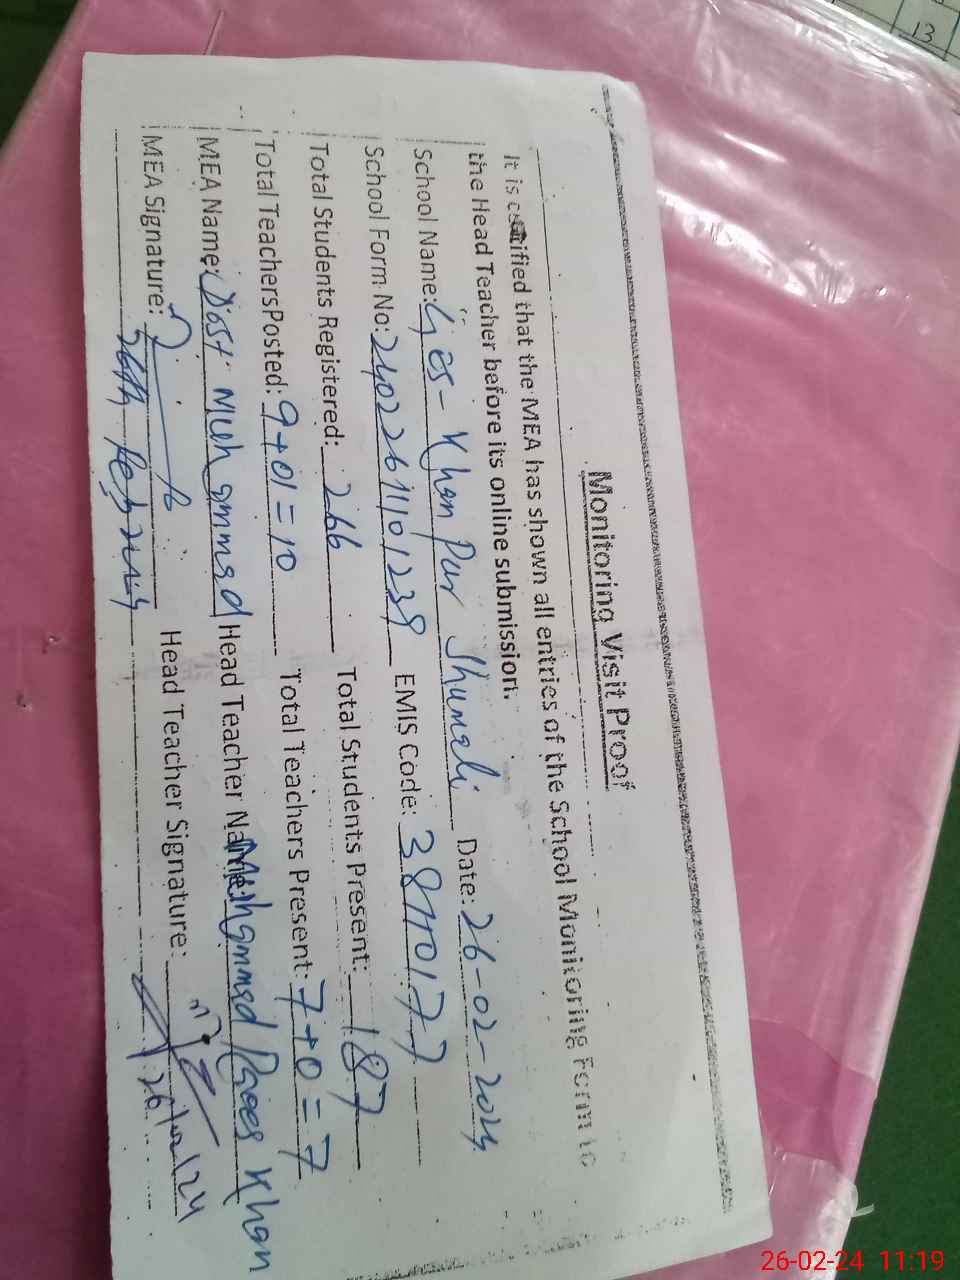 Monitoring Visit Proof
It is certified that the MEA has shown all entries of the School Monitoring Form to
the Head Teacher before its online submission.
School Name: Ges- Khan Pur Shumali Date: 26-02-2024
School Form No: EMIS Code: 38110177
Total Students Registered: 266 Total Students Present: 187
Total Teachers Posted: 9+01=10 Total Teachers Present: 7+0=7
MEA Name: Dost Muhammad Head Teacher Name: Muhammad Khan
MEA Signature: Head Teacher Signature:
26th 26/02/24
13
26-02-24 11:19